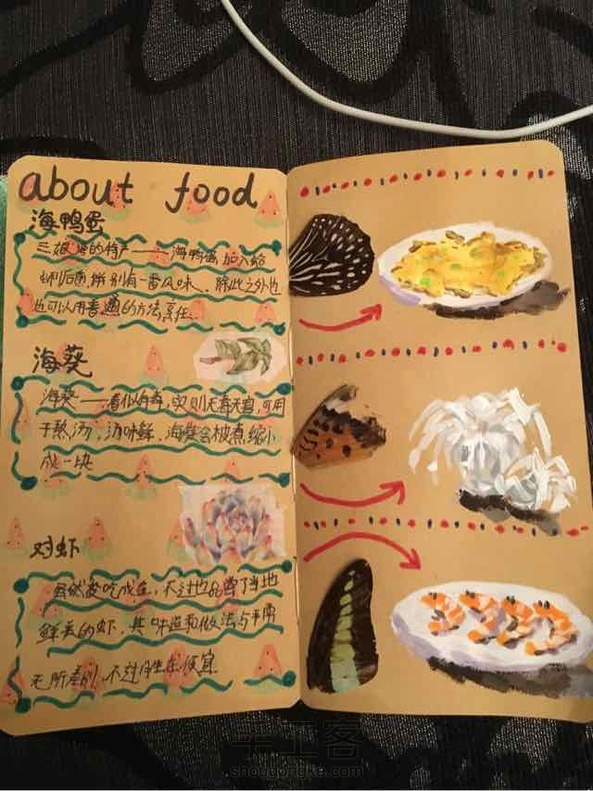 about food
海鸭蛋
三娘湾的特产——海鸭蛋 加入蛤
蜊后 别有一番风味、除此之外也
也可以用普通的方法烹任
海葵
海葵——看似有毒,实则无毒无害,可用
于熬汤,汤味鲜,海葵会被煮缩小
成一块
对虾
虽然爱吃 不过也品尝了当地
鲜美的虾,其味道和做法与平常
无所差别,不过胜在便宜
手工客
shougongke.com